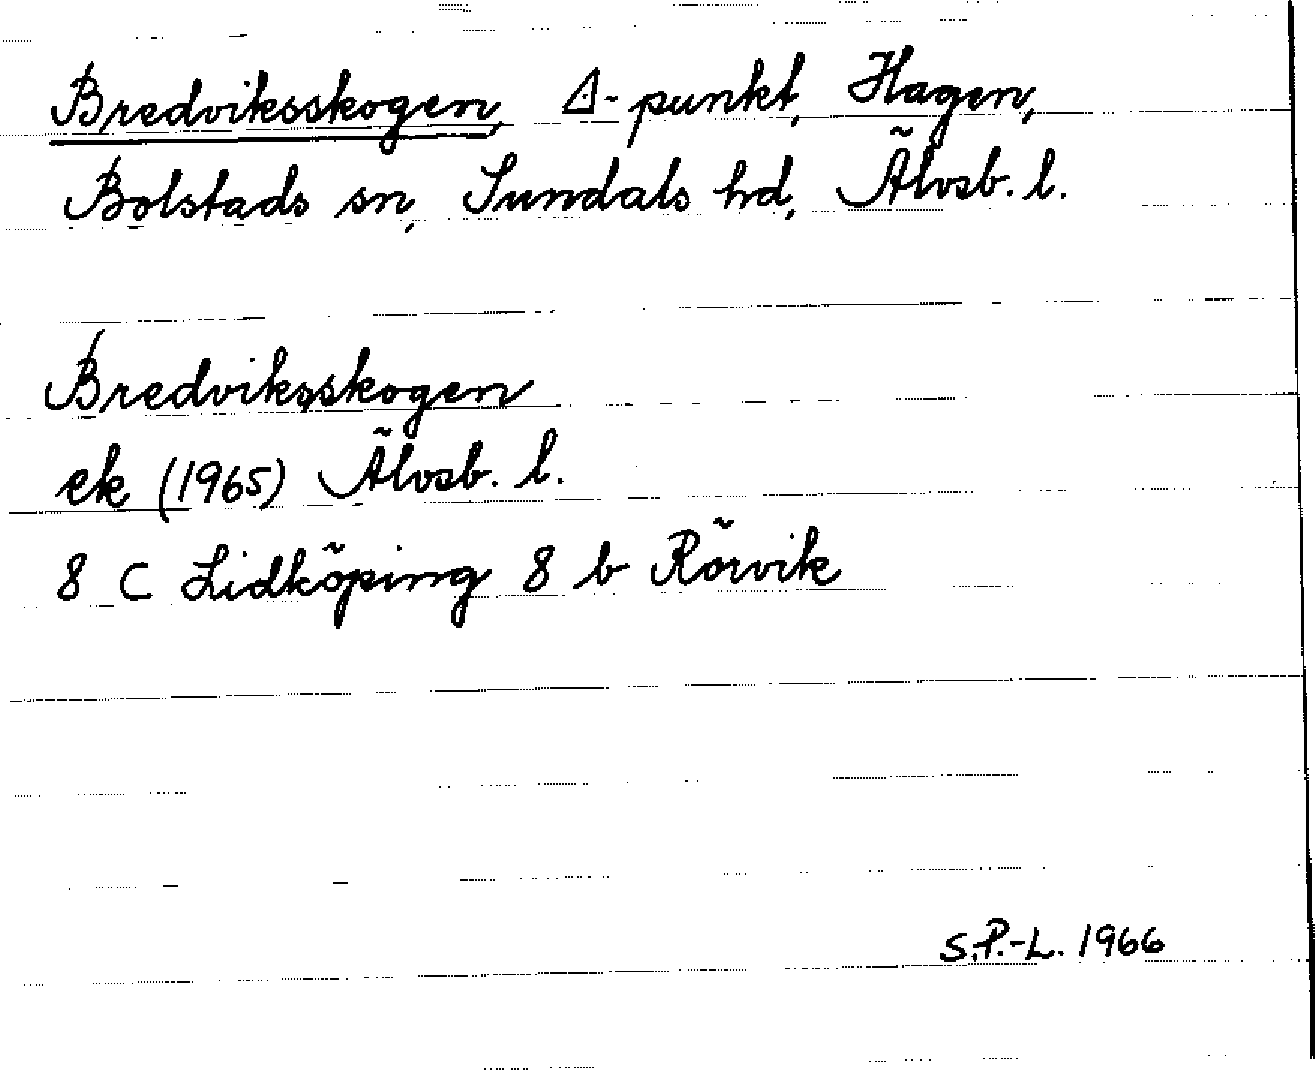 Bredviksskogen, Δ-punkt, Hagen,
Bolstads sn, Sundals hd, Älvsb. l.
Bredviksskogen
ek (1965) Älvsb. l.
8 C Lidköping 8 b Rörvik
S.P.-L. 1966